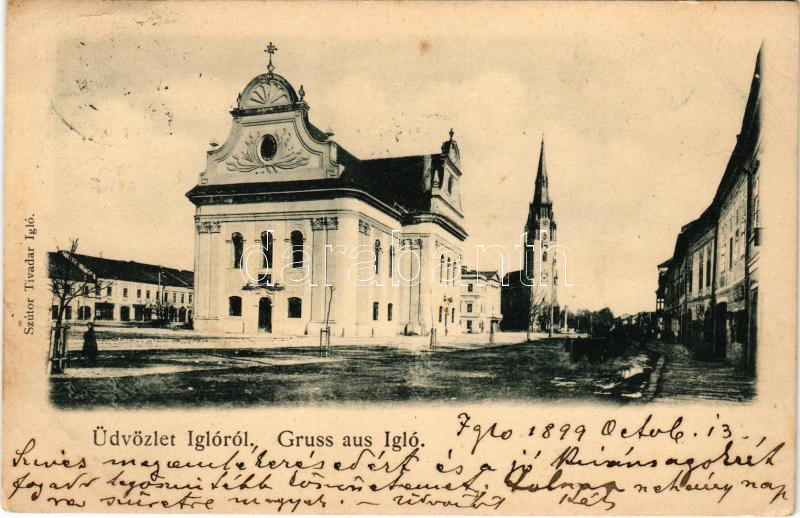 Szútor Tivadar Igló.
darabanth
Üdvözlet Iglóról., Gruss aus Igló.
Igló 1899 Octob. 13.
Szives megemlékezésedért és a jó kivánságokért
fogadd legőszintébb köszönetemet. néhány nap
szüretre megyek. – Üdvözöl